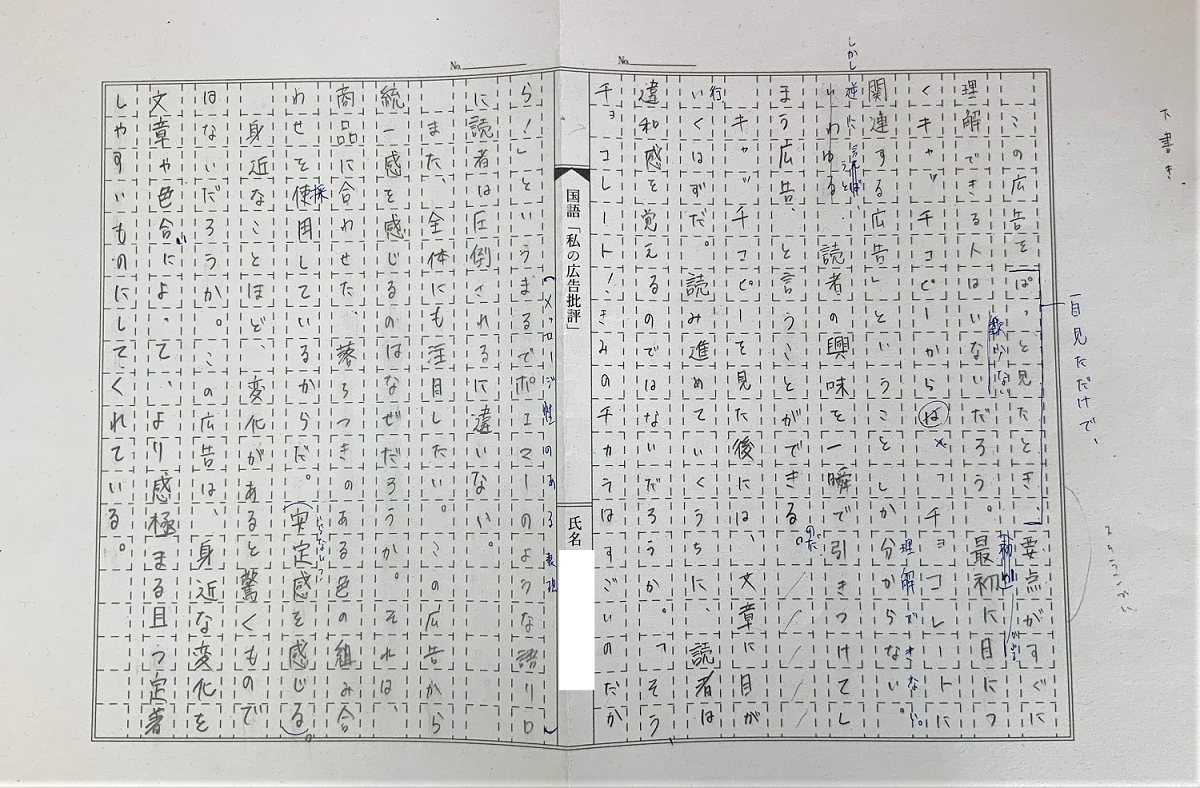 下書き
No.
No.
一目見ただけで、
この広告をぱっと見たとき、要点がすぐに
理解できる人はいないだろう。最初に目につ
くキャッチコピーからは「チョコレートに
関連する広告」ということしか分からない。
理解できない。
しかし逆に言えば
いわゆる、読者の興味を一瞬で引きつけてし
まう広告、と言うことができる。
のだ
キャッチコピーを見た後には、文章に目が
行
いくはずだ。読み進めていくうちに、読者は
違和感を覚えるのではないだろうか。「そう
チョコレート!きみのチカラはすごいのだか
国語「私の広告批評」
氏名
ら!」というまるでポエマーのような語り口
(メッセージ性のある表現)
に読者は圧倒されるに違いない。
また、全体にも注目したい。この広告から
統一感を感じるのはなぜだろうか。それは、
商品に合わせた、落ちつきのある色の組み合
わせを使用しているからだ。安定感を感じる。
採
身近なことほど、変化があると驚くもので
はないだろうか。この広告は、身近な変化を
文章や色合いによって、より感極まる且つ定着
しやすいものにしてくれている。